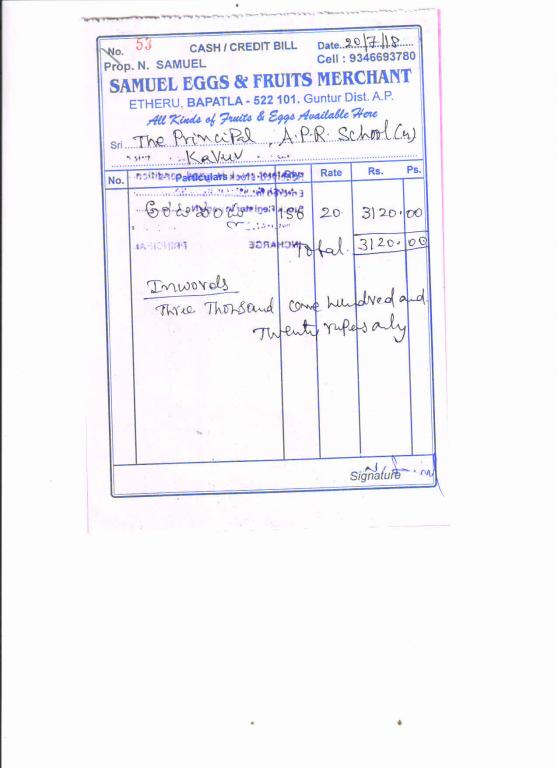 No. 53 CASH / CREDIT BILL Date 20/7/18
Prop. N. SAMUEL Cell : 9346693780
SAMUEL EGGS & FRUITS MERCHANT
ETHERU, BAPATLA - 522 101. Guntur Dist. A.P.
All Kinds of Fruits & Eggs Available Here
Sri The Principal, A.P.R. School
Kavuv
No. Particulars Qty. Rate Rs. Ps.
156 20 3120.00
Total. 3120.00
Inwords
Three Thousand one hundred and
Twenty rupes only
Signature